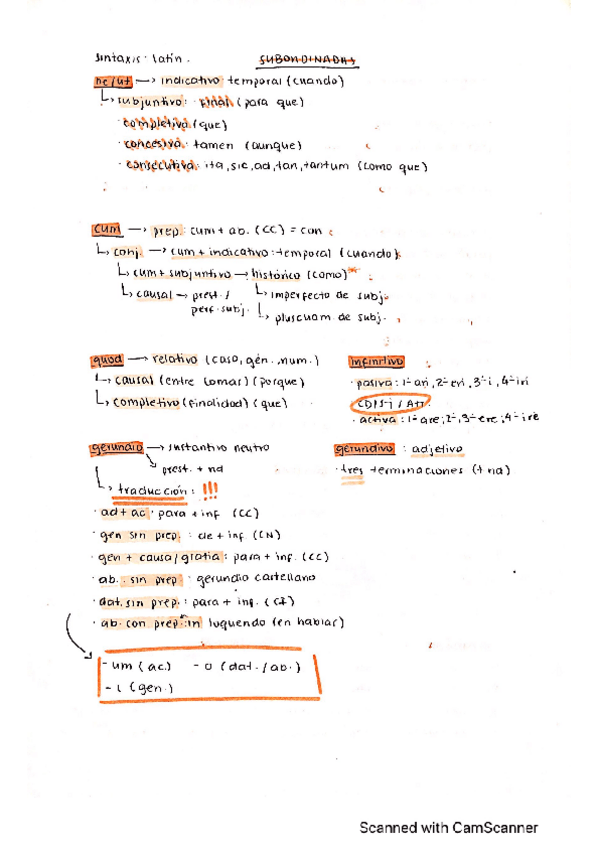 sintaxis latín. SUBORDINADAS
ne/ut → indicativo: temporal (cuando)
↳ subjuntivo: · final (para que)
· completiva (que)
· concesiva: tamen (aunque)
· consecutiva: ita, sic, ad, tan, tantum (como que)
cum → prep: cum + ab. (CC) = con
↳ conj. → cum + indicativo: temporal (cuando)
↳ cum + subjuntivo → histórico (como)*
↳ causal → prest. / ↳ imperfecto de subj.
perf. subj. ↳ pluscuam. de subj.
quod → relativo (caso, gén., num.)
↳ causal (entre comas) (porque)
↳ completivo (finalidad) (que)
infinitivo
· pasiva: 1ª-ari, 2ª-eri, 3ª-i, 4ª-iri
CD/S-j / Atr.
· activa: 1ª-are, 2ª, 3ª-ere, 4ª-ire
gerundio → sustantivo neutro
prest. + nd
↳ traducción: !!!
· ad + ac: para + inf (CC)
· gen sin prep.: de + inf. (CN)
· gen + causa/gratia: para + inf. (CC)
· ab. sin prep: gerundio castellano
· dat. sin prep.: para + inf. (CI)
· ab. con prep: in loquendo (en hablar)
gerundivo: adjetivo
· tres terminaciones (+ nd)
- um (ac) - o (dat. / ab.)
- i (gen.)
Scanned with CamScanner